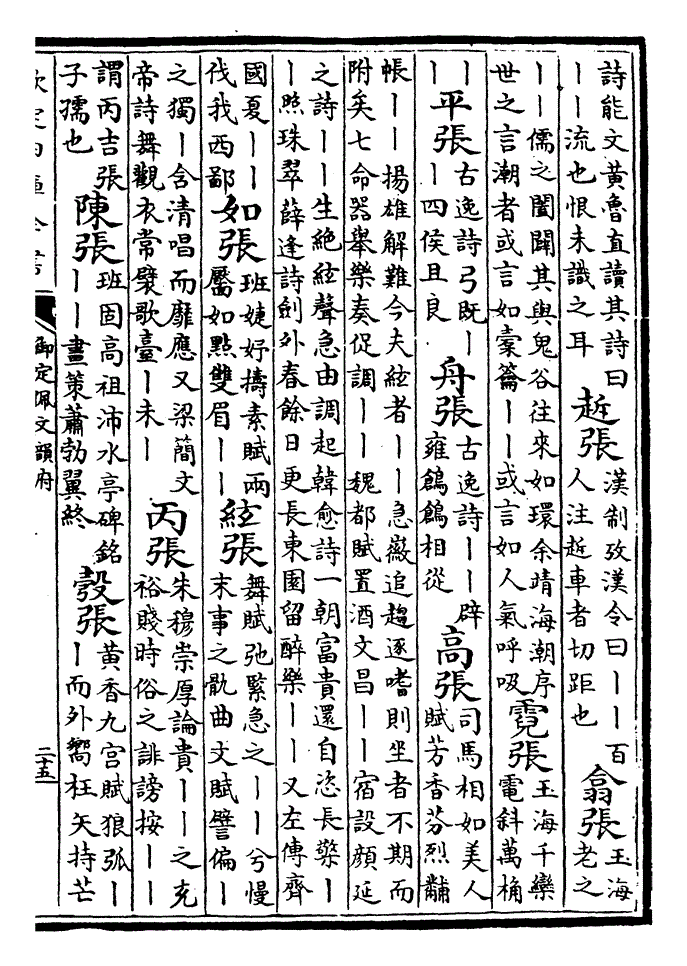 詩能文黃魯直讀其詩曰
｜｜流也恨未識之耳
䟆張
漢制攷漢令曰｜｜百
人注䟆車者切距也
翕張
玉海
老之
｜｜儒之闔闢其與鬼谷往來如環余靖海潮序
世之言潮者或言如橐籥｜｜或言如人氣呼吸
霓張
玉海千欒
電斜萬桷
｜
｜
平張
古逸詩弓既｜
｜四侯且良
舟張
古逸詩｜｜辟
雍鶬鶬相從
高張
司馬相如美人
賦芳香芬烈黼
帳｜｜揚雄解難今夫絃者｜｜急徽追趨逐嗜則坐者不期而
附矣七命器舉樂奏促調｜｜魏都賦置酒文昌｜｜宿設顏延
之詩｜｜生絶絃聲急由調起韓愈詩一朝富貴還自恣長檠｜
｜照珠翠薛逢詩劍外春餘日更長東園留醉樂｜｜又左傳齊
國夏｜｜
伐我西鄙
如張
班婕妤擣素賦兩
靨如點雙眉｜｜
絃張
舞賦弛緊急之｜｜兮慢
末事之骩曲文賦譬偏｜
之獨｜含清唱而靡應又梁簡文
帝詩舞觀衣常襞歌臺｜未｜
丙張
朱穆崇厚論貴｜｜之克
裕賤時俗之誹謗按｜｜
謂丙吉張
子孺也
陳張
班固高祖沛水亭碑銘
｜｜畫策蕭勃翼終
彀張
黃香九宮賦狼弧｜
｜而外嚮枉矢持芒
欽定四庫全書
御定佩文韻府
二十五